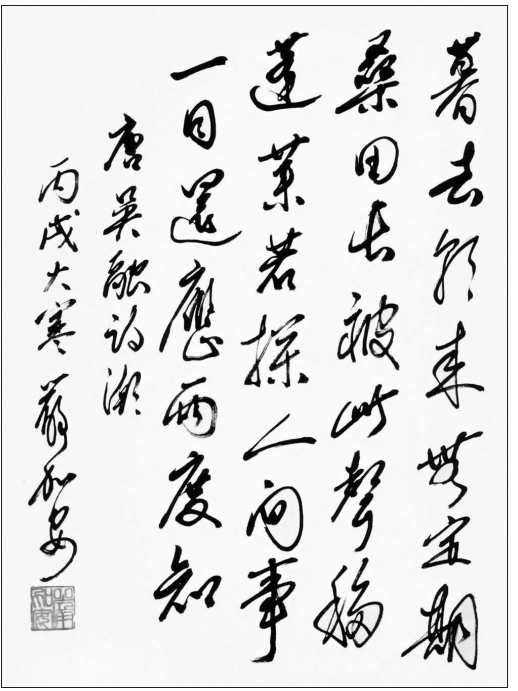 暮去朝来無定期
桑田長被此聲移
蓬莱若探人间事
一日還應兩度知
唐吴融詩潮
丙戌大寒